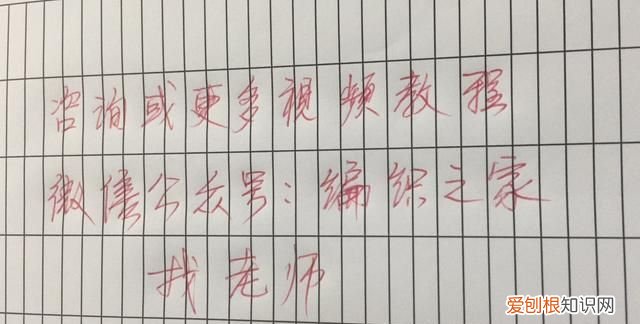 咨询或更多视频教程
微信公众号:编织之家
找老师
爱刨根知识网
www.baogenzhishi.com